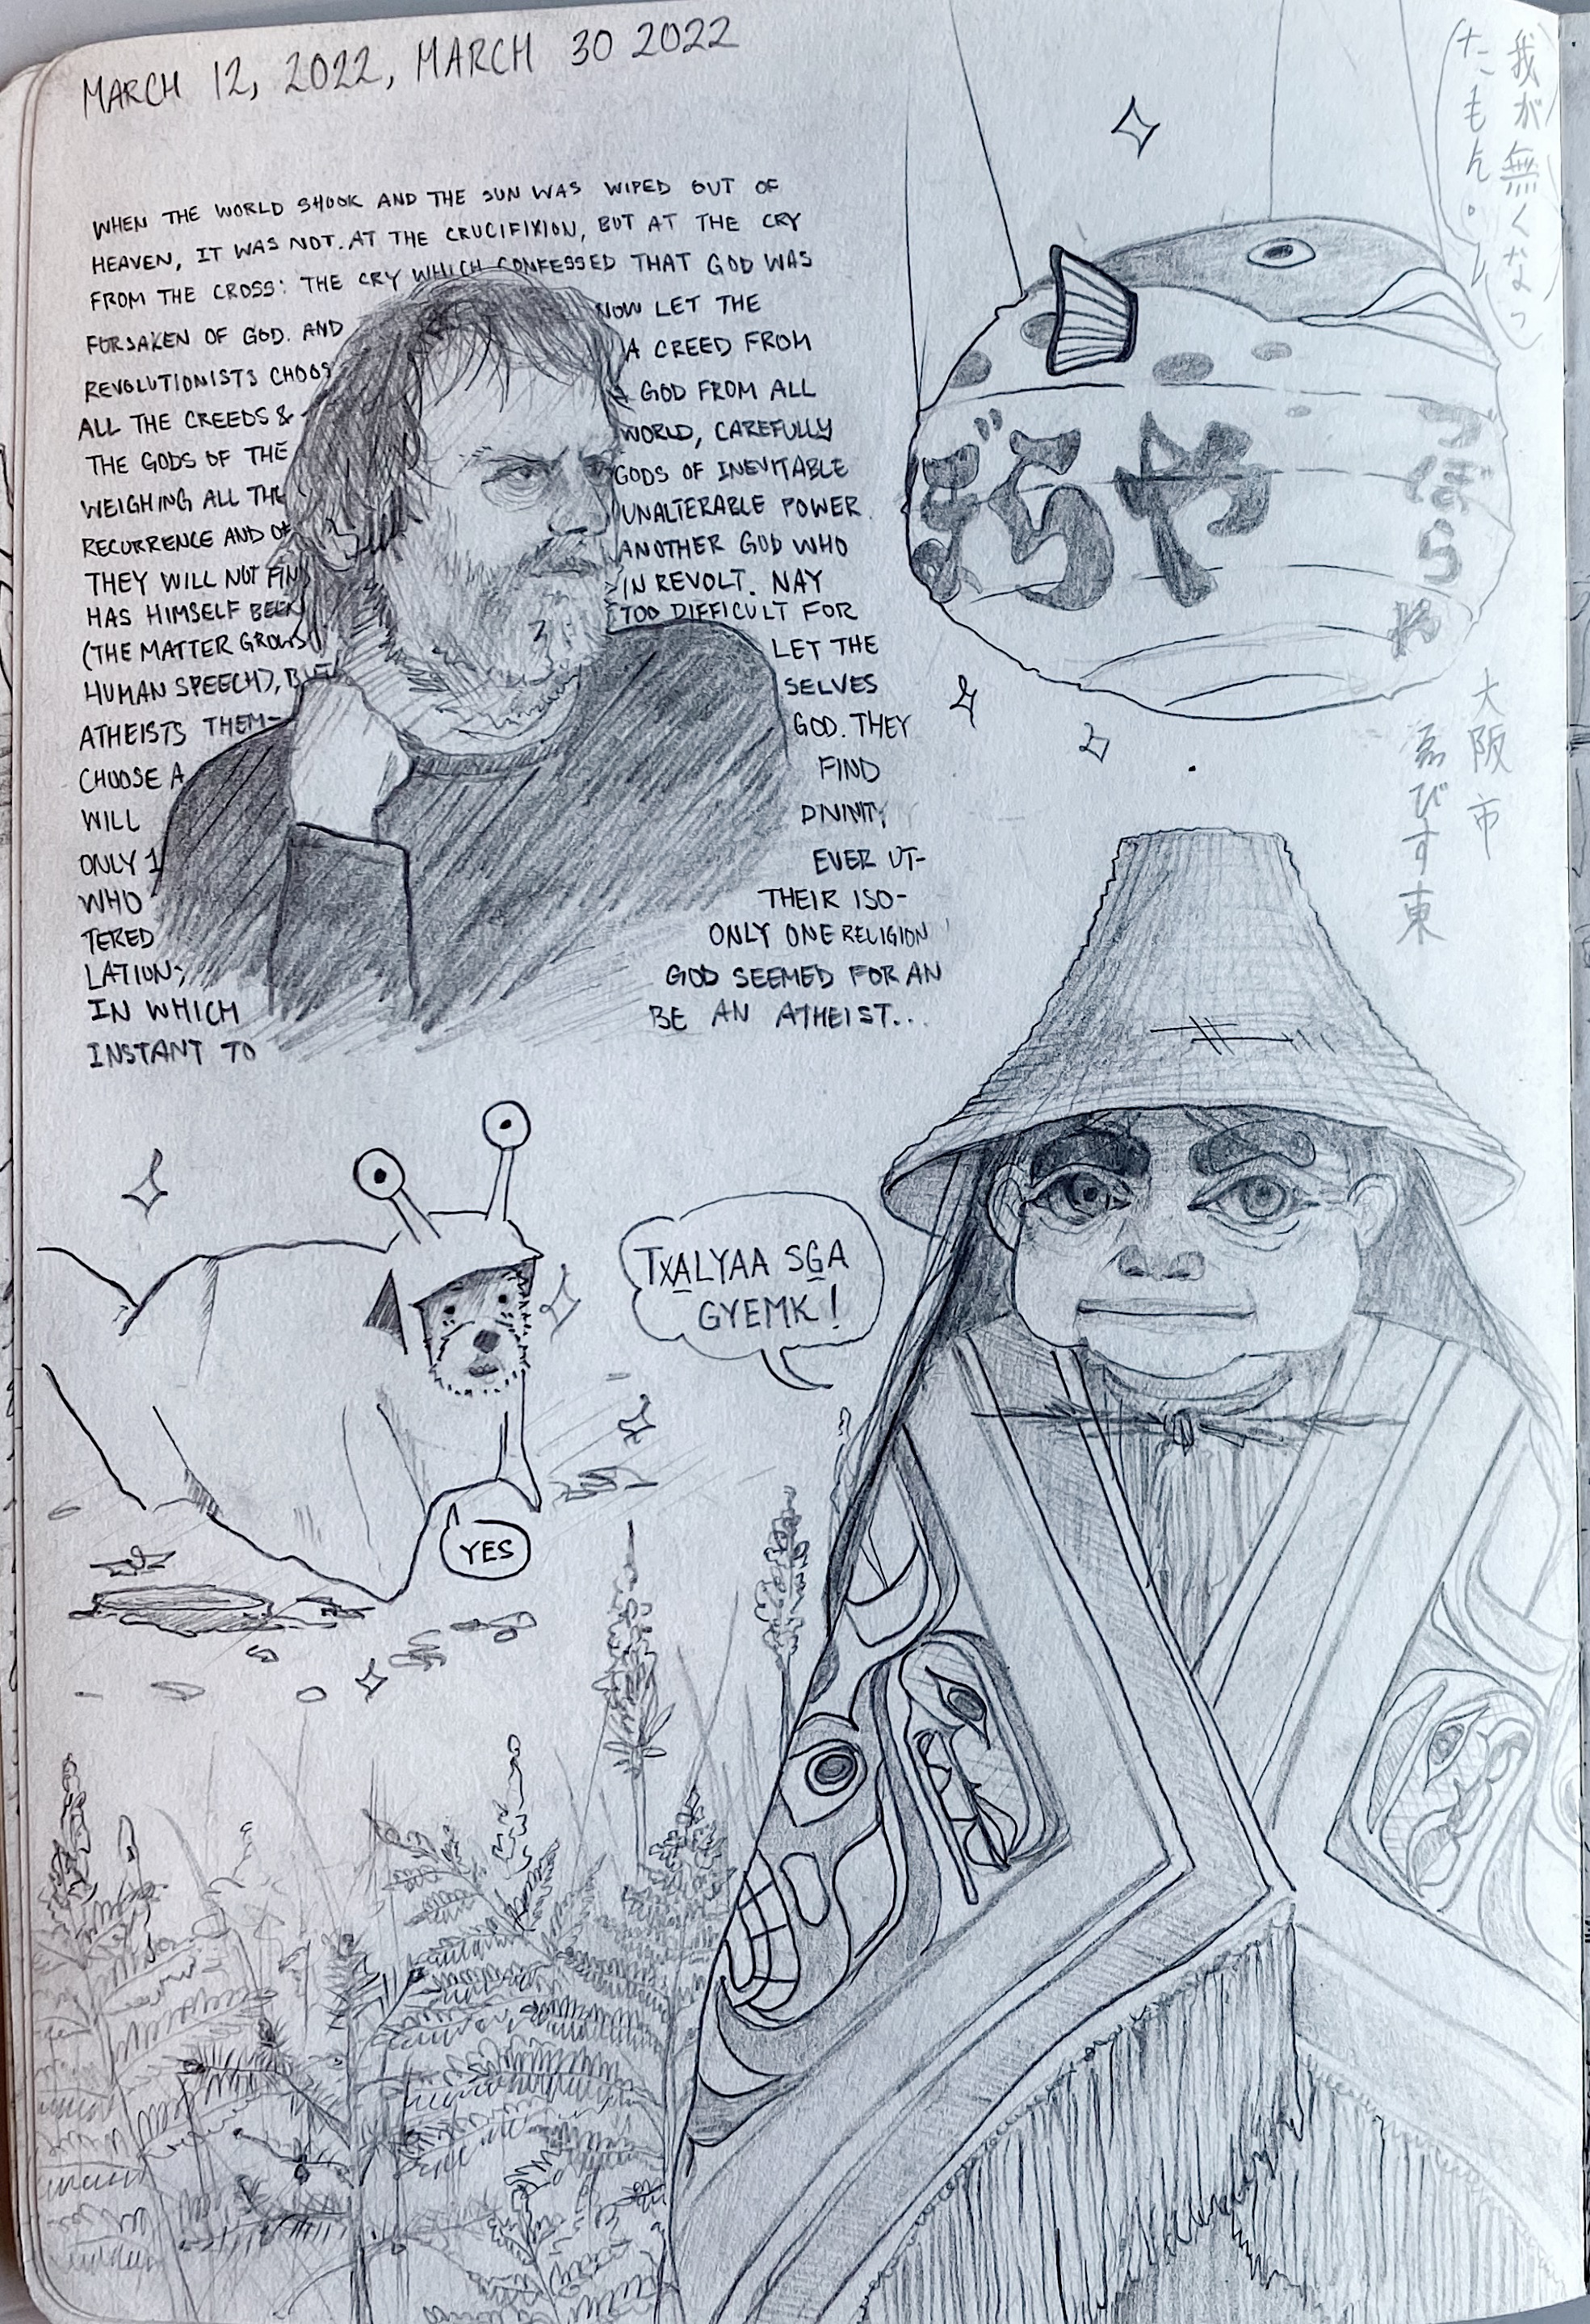 MARCH 12, 2022, MARCH 30 2022
WHEN THE WORLD SHOOK AND THE SUN WAS WIPED OUT OF
HEAVEN, IT WAS NOT. AT THE CRUCIFIXION, BUT AT THE CRY
FROM THE CROSS: THE CRY WHICH CONFESSED THAT GOD WAS
FORSAKEN OF GOD. AND NOW LET THE
REVOLUTIONISTS CHOOS A CREED FROM
ALL THE CREEDS & A GOD FROM ALL
THE GODS OF THE WORLD, CAREFULLY
WEIGHING ALL THE GODS OF INEVITABLE
RECURRENCE AND OF UNALTERABLE POWER.
THEY WILL NOT FIN ANOTHER GOD WHO
HAS HIMSELF BEEN IN REVOLT. NAY
(THE MATTER GROWS TOO DIFFICULT FOR
HUMAN SPEECH), BUT LET THE
ATHEISTS THEM- SELVES
CHOOSE A GOD. THEY
WILL FIND
ONLY 1 DIVINITY
WHO EVER UT-
TERED THEIR ISO-
LATION; ONLY ONE RELIGION
IN WHICH GOD SEEMED FOR AN
INSTANT TO BE AN ATHEIST...
我が無くなっ
たもん。
ぼらや
づぼらや
大阪市
恵びす東
TXALYAA SGA
GYEMK!
YES